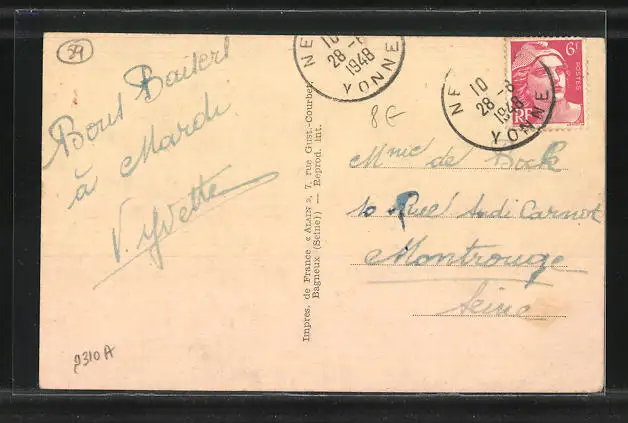 89
Bons Baisers
à Mardi
V. Yvette
2310A
Impres. de France « ALAIN », 7, rue Gust.-Courbet,
Bagneux (Seine)) — Reprod. int.
NE
10
28 -8
1948
YONNE
NE
10
28 -8
1948
YONNE
6F
POSTES
RF
8€
Mme de Bock
10 Rue Sadi Carnot
Montrouge
Seine